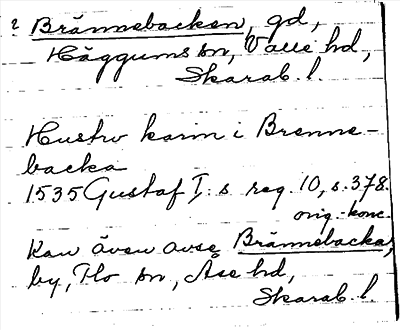 ? Brännebacken, gd,
Häggums sn, Valle hd,
Skarab. l.
Hustro karin i Brenne-
backa
1535 Gustaf I:s reg. 10, s. 378.
orig.-konc.
Kan även avse Brännebacka,
by, Flo sn, Åse hd,
Skarab. l.